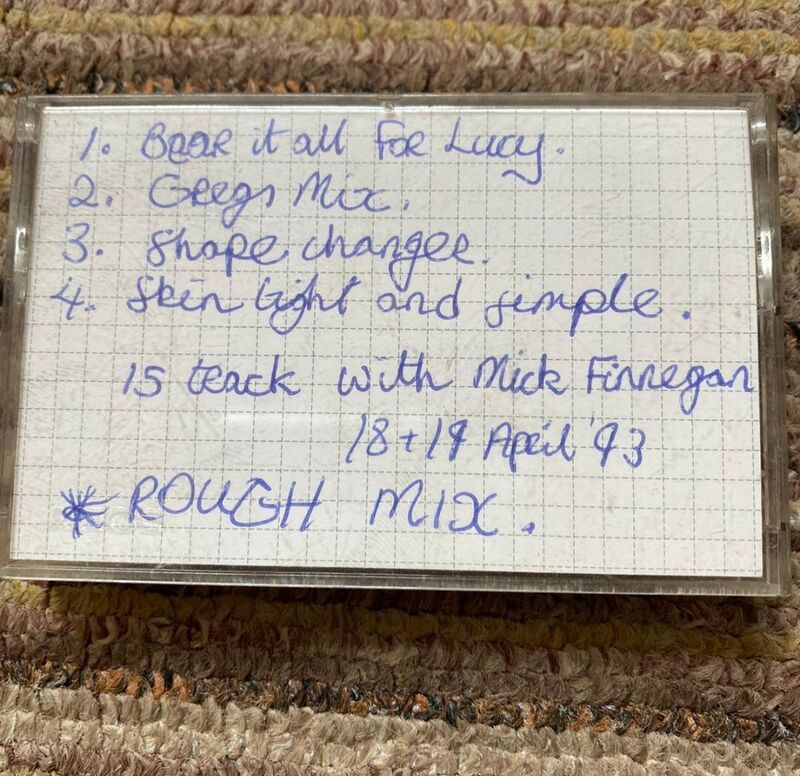 1. Bear it all For Lucy.
2. Gregs Mix.
3. Shape changer.
4. Skin tight and simple.
15 track with Mick Finnegan
18+19 April '93
* ROUGH MIX.